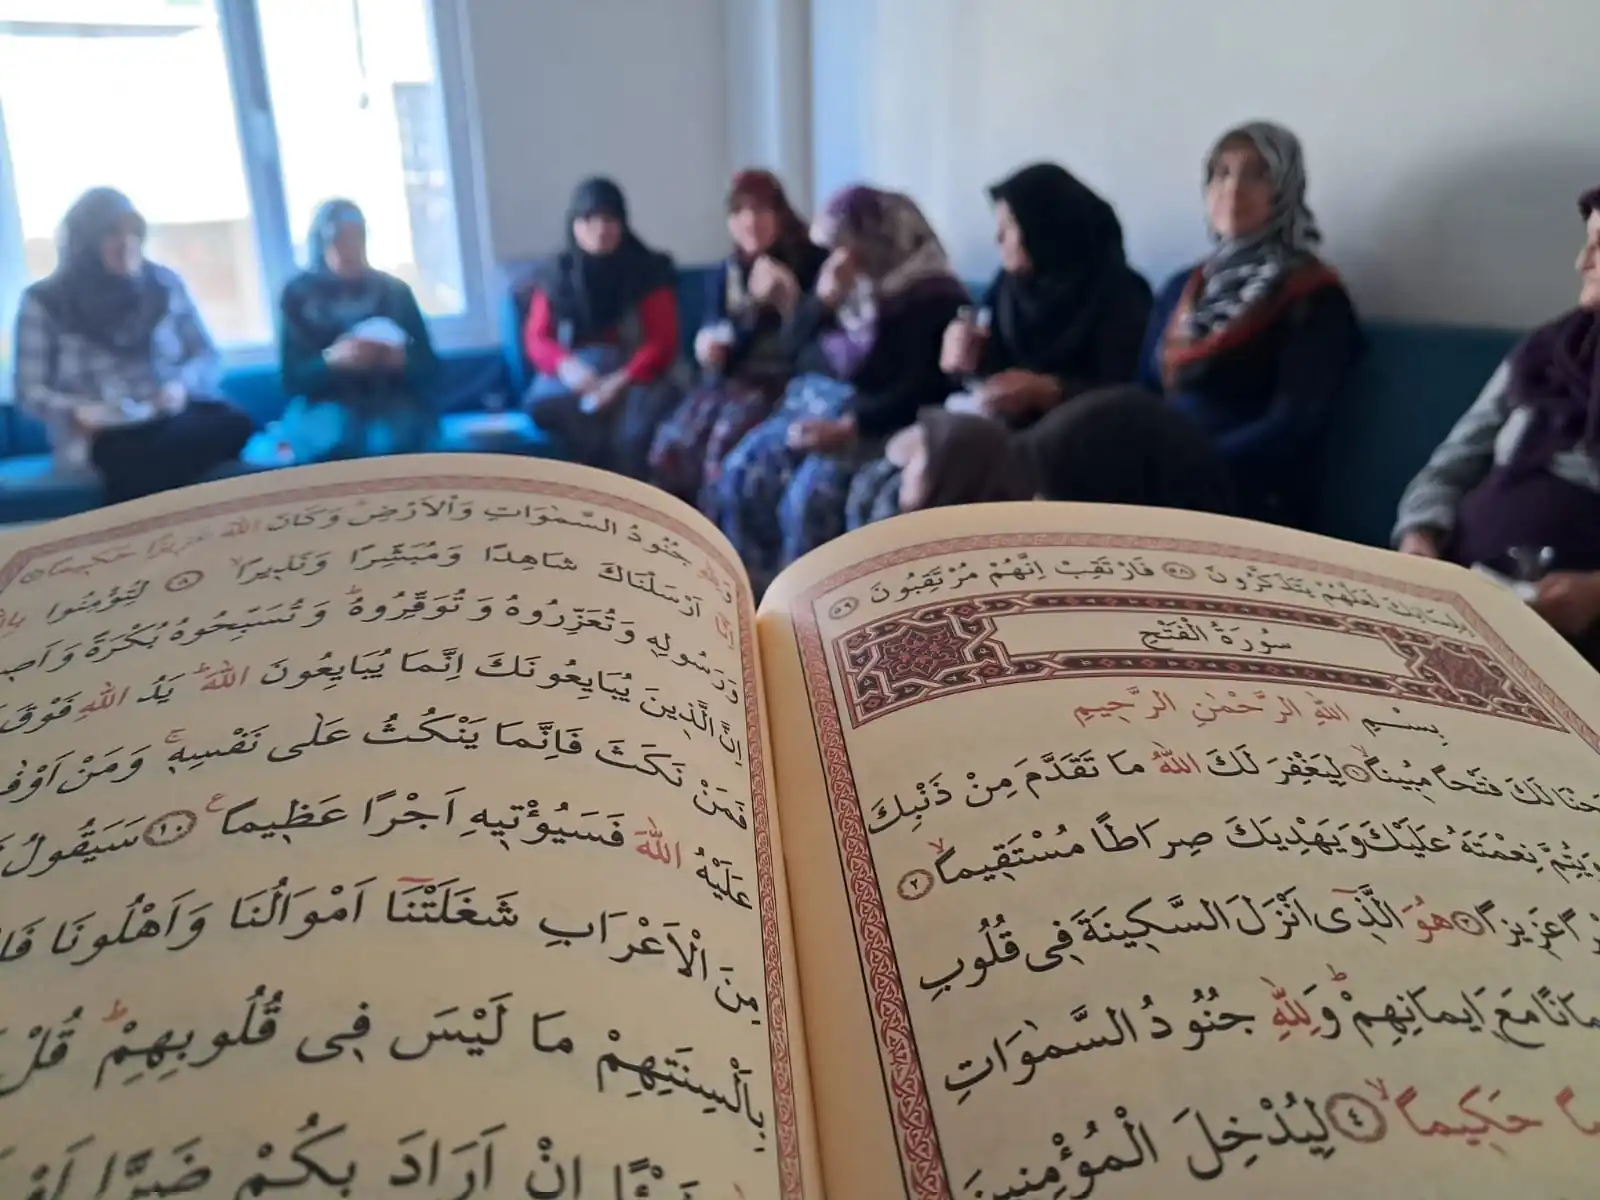 لَعَلَّهُمْ يَتَذَكَّرُونَ ﴿٥٨﴾ فَارْتَقِبْ اِنَّهُمْ مُرْتَقِبُونَ ﴿٥٩﴾
سُورَةُ الْفَتْحِ
بِسْمِ اللّٰهِ الرَّحْمٰنِ الرَّحِيمِ
لَكَ فَتْحًا مُبِينًاۙ ﴿١﴾ لِيَغْفِرَ لَكَ اللّٰهُ مَا تَقَدَّمَ مِنْ ذَنْبِكَ
وَيُتِمَّ نِعْمَتَهُ عَلَيْكَ وَيَهْدِيَكَ صِرَاطًا مُسْتَقِيمًاۙ ﴿٢﴾
عَزِيزًا ﴿٣﴾ هُوَ الَّذِٓى اَنْزَلَ السَّكِينَةَ فِى قُلُوبِ
مَعَ اِيمَانِهِمْۜ وَلِلّٰهِ جُنُودُ السَّمٰوَاتِ
حَكِيمًاۙ ﴿٤﴾ لِيُدْخِلَ الْمُؤْمِنِينَ
جُنُودُ السَّمٰوَاتِ وَالْاَرْضِۜ وَكَانَ اللّٰهُ عَزِيزًا حَكِيمًا
اَرْسَلْنَاكَ شَاهِدًا وَمُبَشِّرًا وَنَذِيرًاۙ ﴿٨﴾ لِتُؤْمِنُوا
وَرَسُولِهِ وَتُعَزِّرُوهُ وَتُوَقِّرُوهُۜ وَتُسَبِّحُوهُ بُكْرَةً
اِنَّ الَّذِينَ يُبَايِعُونَكَ اِنَّمَا يُبَايِعُونَ اللّٰهَۜ يَدُ اللّٰهِ فَوْقَ
فَمَنْ نَكَثَ فَاِنَّمَا يَنْكُثُ عَلٰى نَفْسِهِۚ وَمَنْ
عَلَيْهُ اللّٰهَ فَسَيُؤْتِيهِ اَجْرًا عَظِيمًا ﴿١٠﴾ سَيَقُولُ
مِنَ الْاَعْرَابِ شَغَلَتْنَٓا اَمْوَالُنَا وَاَهْلُونَا
بِاَلْسِنَتِهِمْ مَا لَيْسَ فِى قُلُوبِهِمْۜ قُلْ
اِنْ اَرَادَ بِكُمْ ضَرًّا